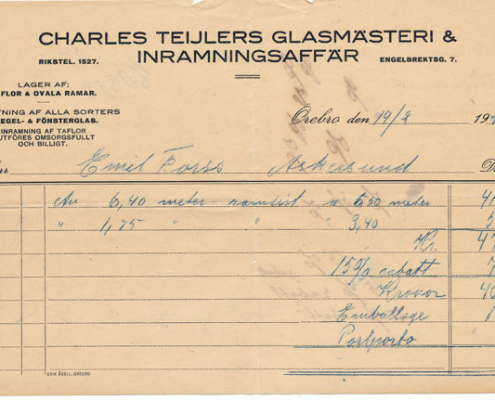 CHARLES TEIJLERS GLASMÄSTERI &
INRAMNINGSAFFÄR
RIKSTEL. 1527.
ENGELBREKTSG. 7.
LAGER AF:
FLOR & OVALA RAMAR.
TNING AF ALLA SORTERS
EGEL- & FÖNSTERGLAS.
INRAMNING AF TAFLOR
UTFÖRES OMSORGSFULLT
OCH BILLIGT.
Örebro den 19/2 19
Emil Forss Askersund
Av 6,40 meter ramlist a 6,50 meter 4
" 1,75 " " 3,40 5
Kr. 47
15% rabatt 7
Kronor 40
Emballage 1
Portporto
ERIK ÅSELL, ÖREBRO